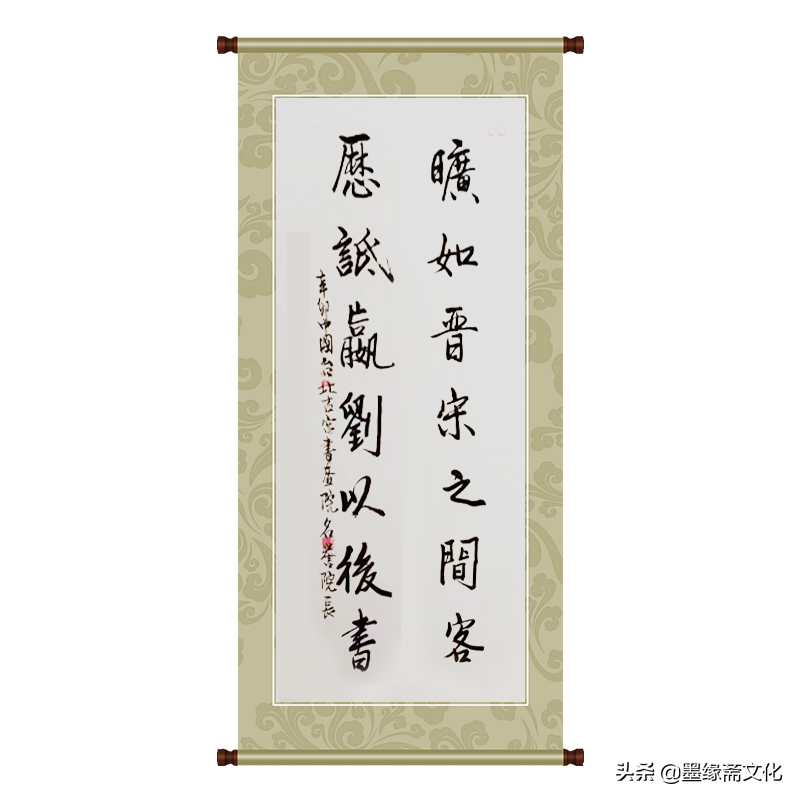 曠如晋宋之間客
歷詆嬴劉以後書
辛卯中國台北古官書畫院名譽院長
头条 @墨缘斋文化